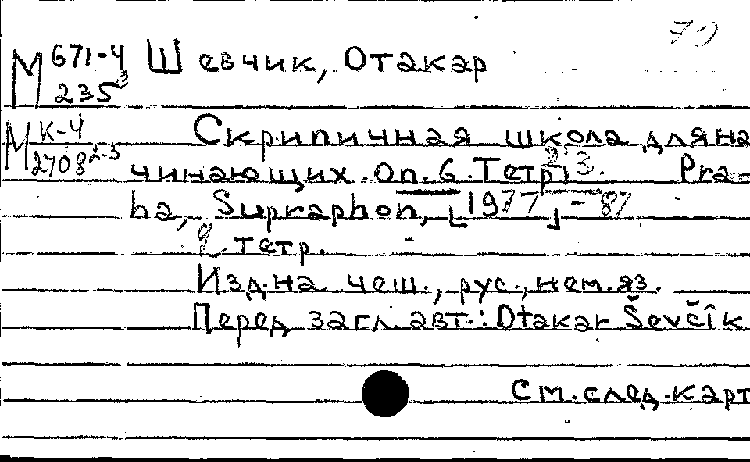 70
М 671-4 Шевчик, Отакар
235³
М К-4 Скрипичная школа для на
2708²⁻³ чинающих. Оп. 6. Тетр. 2, 3. Pra-
ha, Supraphon, [1977]-87
тетр.
Изд. на чеш., рус., нем. яз.
Перед загл. авт.: Otakar Ševčîk
См. след. карт